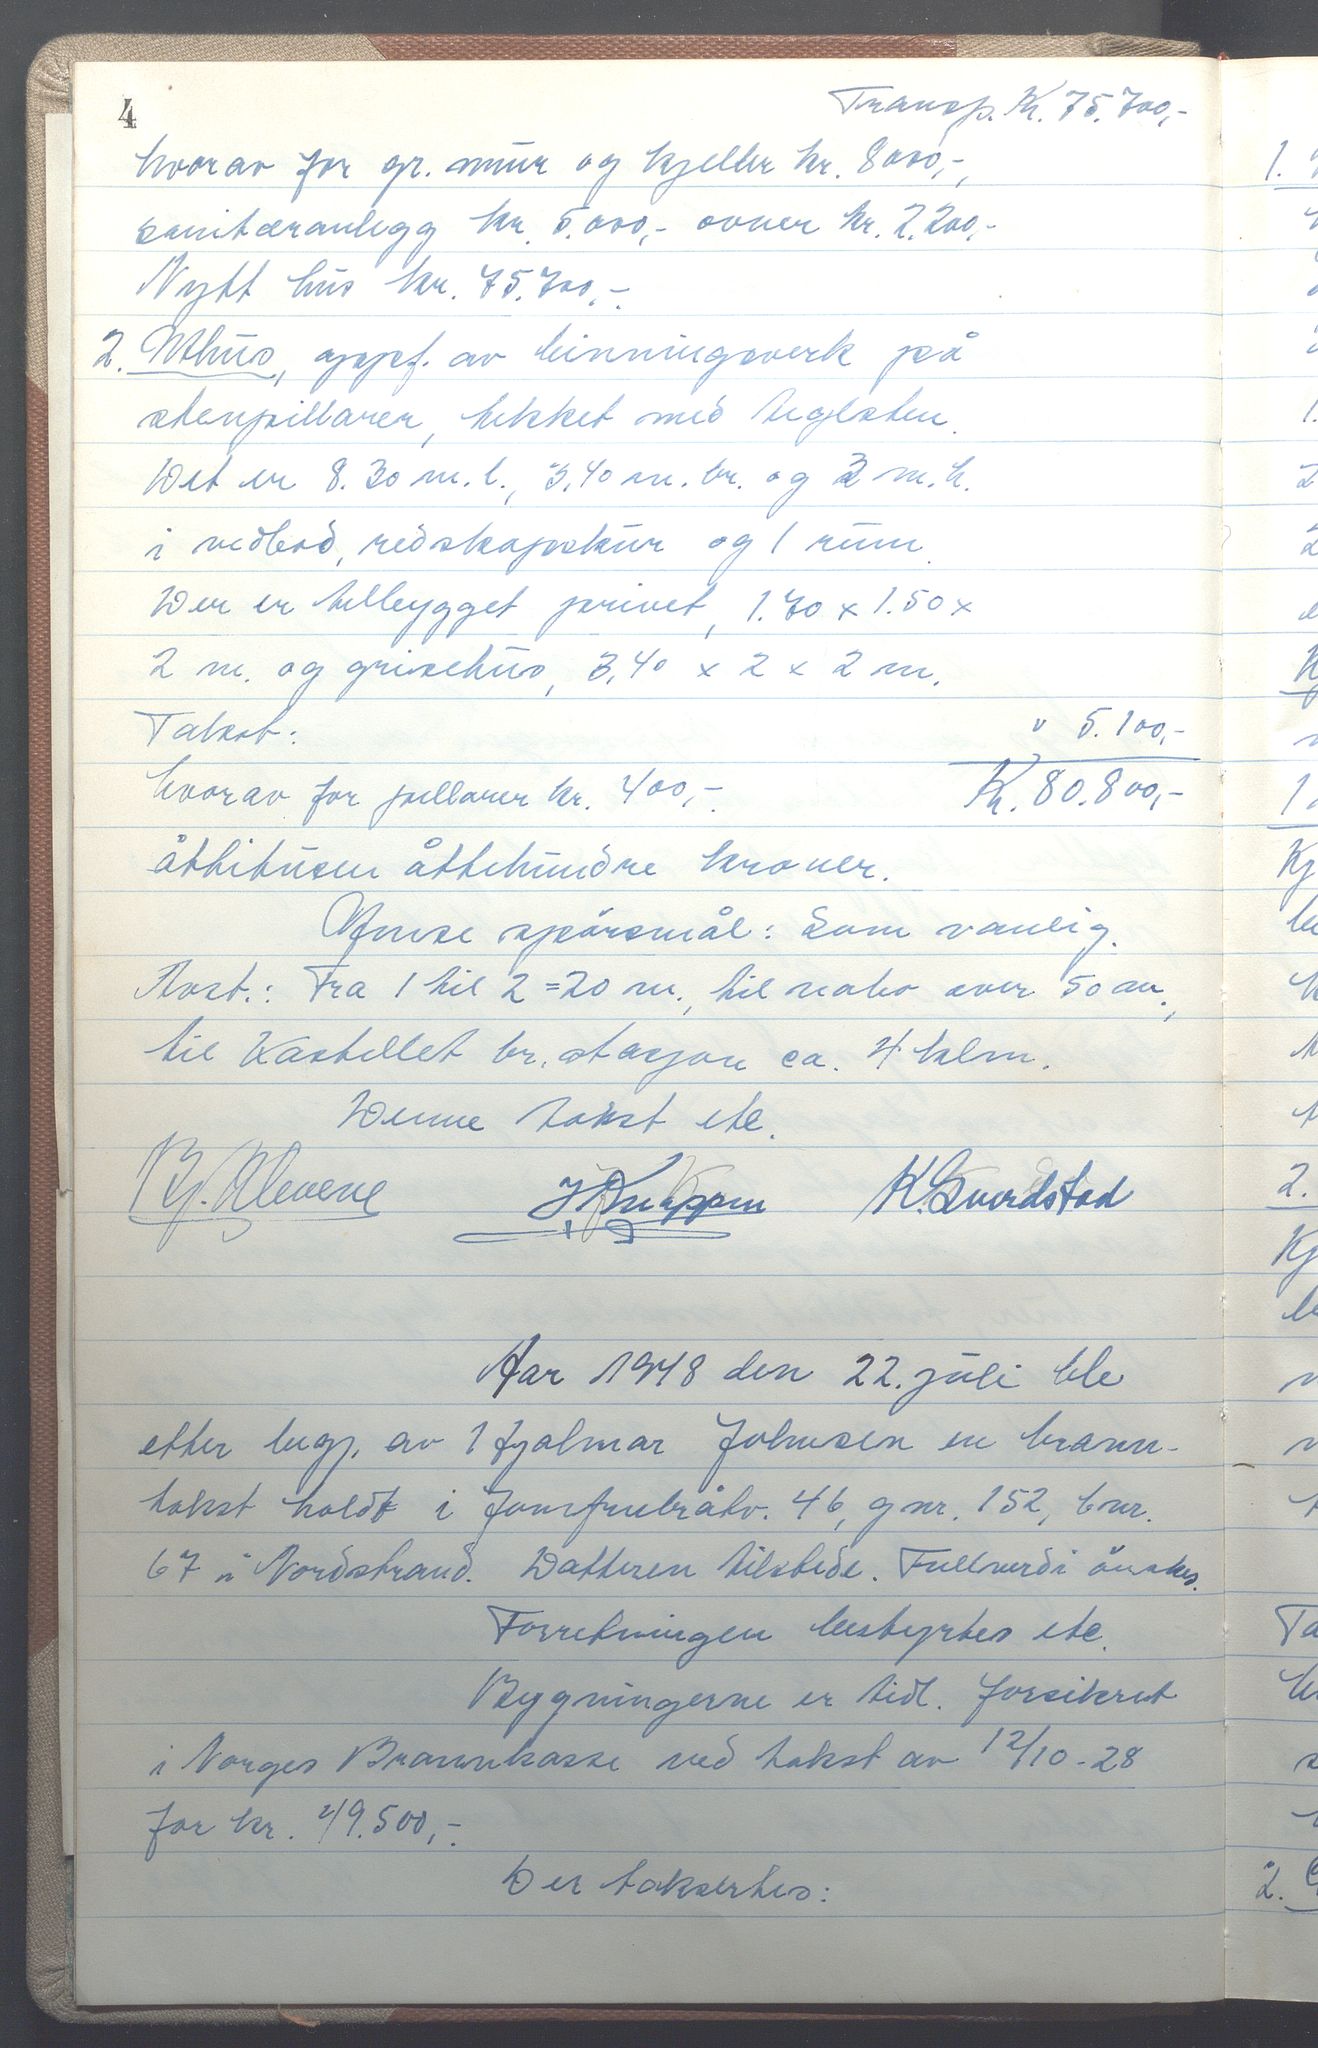 4
Transp. Kr. 75.700,-
hvorav for gr. mur og kjeller kr. 8000,-,
sanitæranlegg kr. 5.000,- ovner kr. 2.200,-
Nytt hus kr. 75.700,-.
2. Uthus, oppf. av binningsverk på
stenpillarer, tekket med teglsten.
Det er 8.30 m. l., 3,40 m. br. og 2 m. h.
i vedbod, redskapsskur og 1 rum.
Der er tilbygget privet, 1.70 x 1.50 x
2 m. og grisehus, 3,40 x 2 x 2 m.
Takst: " 5.100,-
hvorav for pillarer kr. 400,-. Kr. 80.800,-
åttitusen åttehundre kroner.
Visse spörsmål: Som vanlig.
Avst.: Fra 1 til 2 = 20 m., til nabo over 50 m.,
til Kastellet br. stasjon ca. 4 klm.
Denne takst etc.
J. Knappen K. Sverdstad
Aar 1948 den 22. juli ble
etter beg. av Hjalmar Johnsen en brann-
takst holdt i Jomfrubråtv. 46, gnr. 152, bnr.
67 i Nordstrand. Datteren tilstede. Fullverdi önskes.
Forretningen bestyrtes etc.
Bygningerne er tidl. forsikret
i Norges Brannkasse ved takst av 12/10-28
for kr. 49.500,-.
Der taksertes: